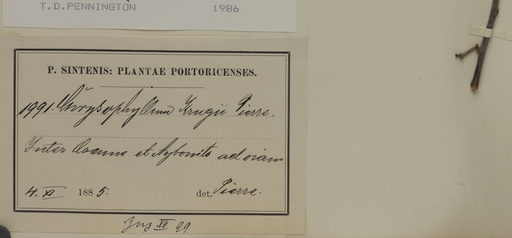 T.D.PENNINGTON 1986
P. SINTENIS: PLANTAE PORTORICENSES.
1991. Chrysophyllum Krugii Pierre.
Inter Coamo et Aybonito ad viam
4. XI 1885. det. Pierre.
XII 99